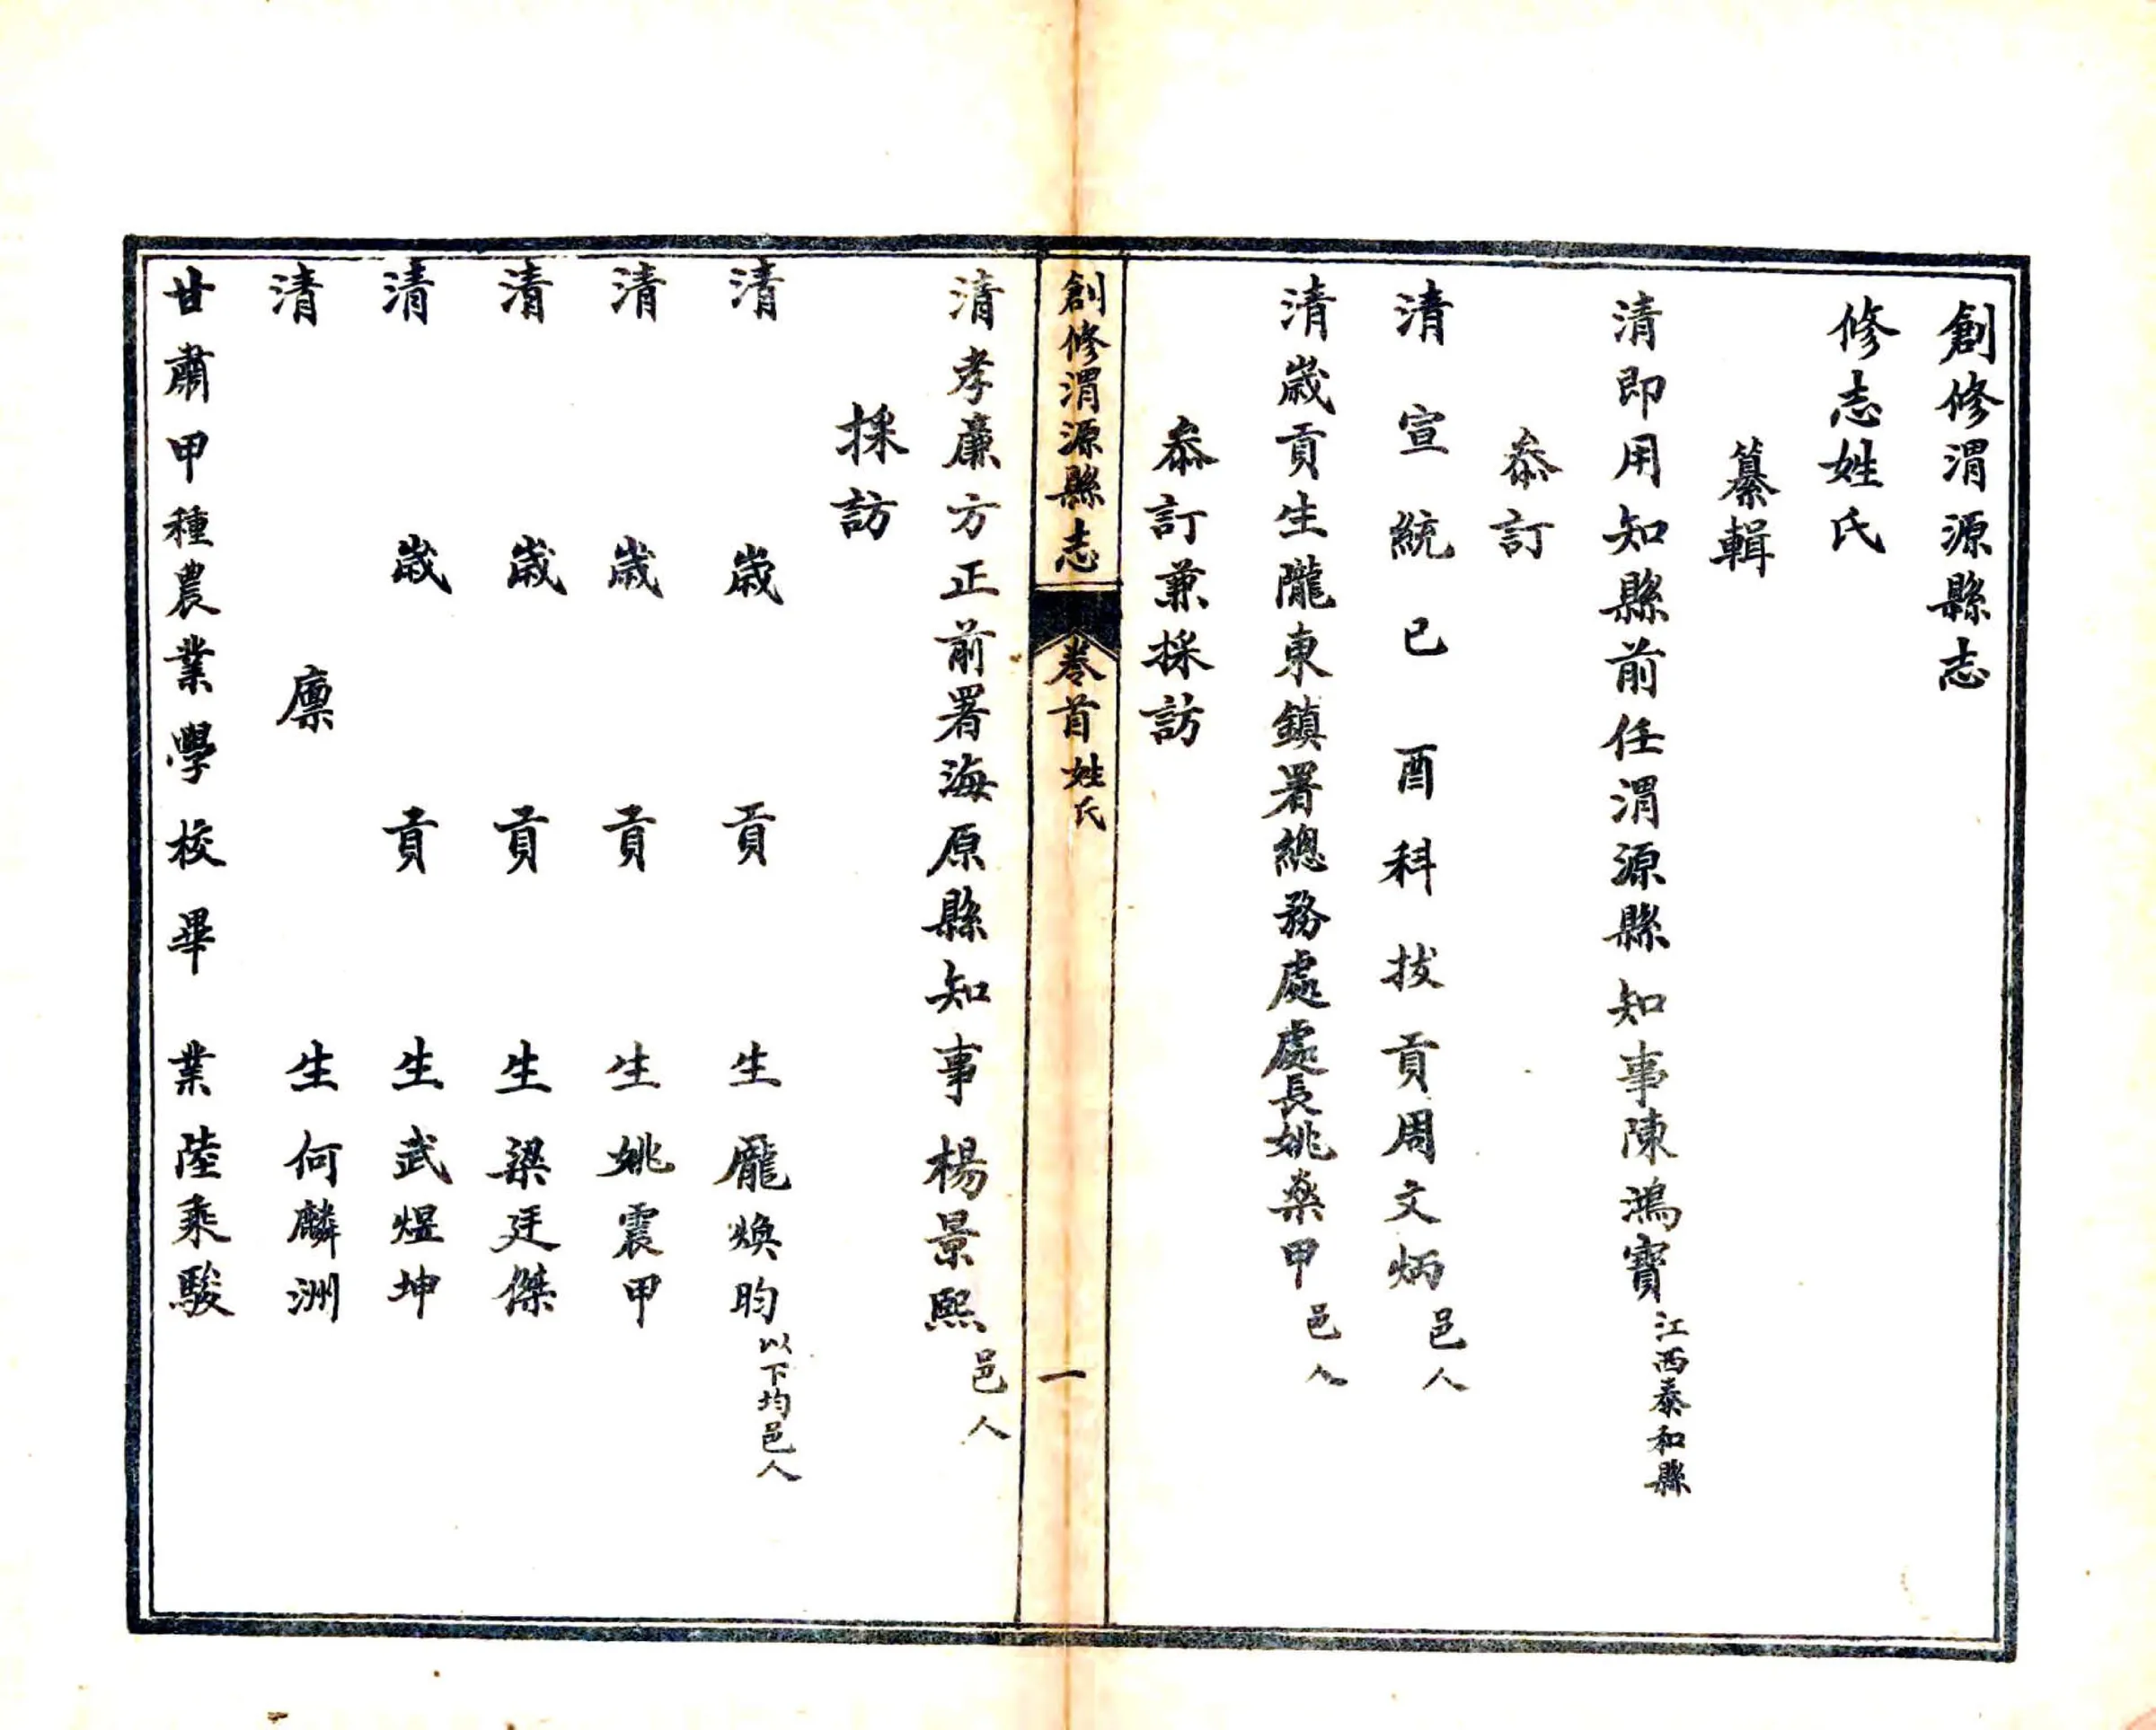 創修渭源縣志
修志姓氏
纂輯
清即用知縣前任渭源縣知事陳鴻寶江西泰和縣
叅訂
清宣統已酉科拔貢周文炳邑人
清歲貢生隴東鎮署總務處處長姚燊甲邑人
叅訂兼採訪
創修渭源縣志 卷首 姓氏 一
清孝廉方正前署海原縣知事楊景熙邑人
採訪
清歲貢生龎煥昀以下均邑人
清歲貢生姚震甲
清歲貢生梁廷傑
清歲貢生武煜坤
清廪生何麟洲
甘肅甲種農業學校畢業陸乘駿